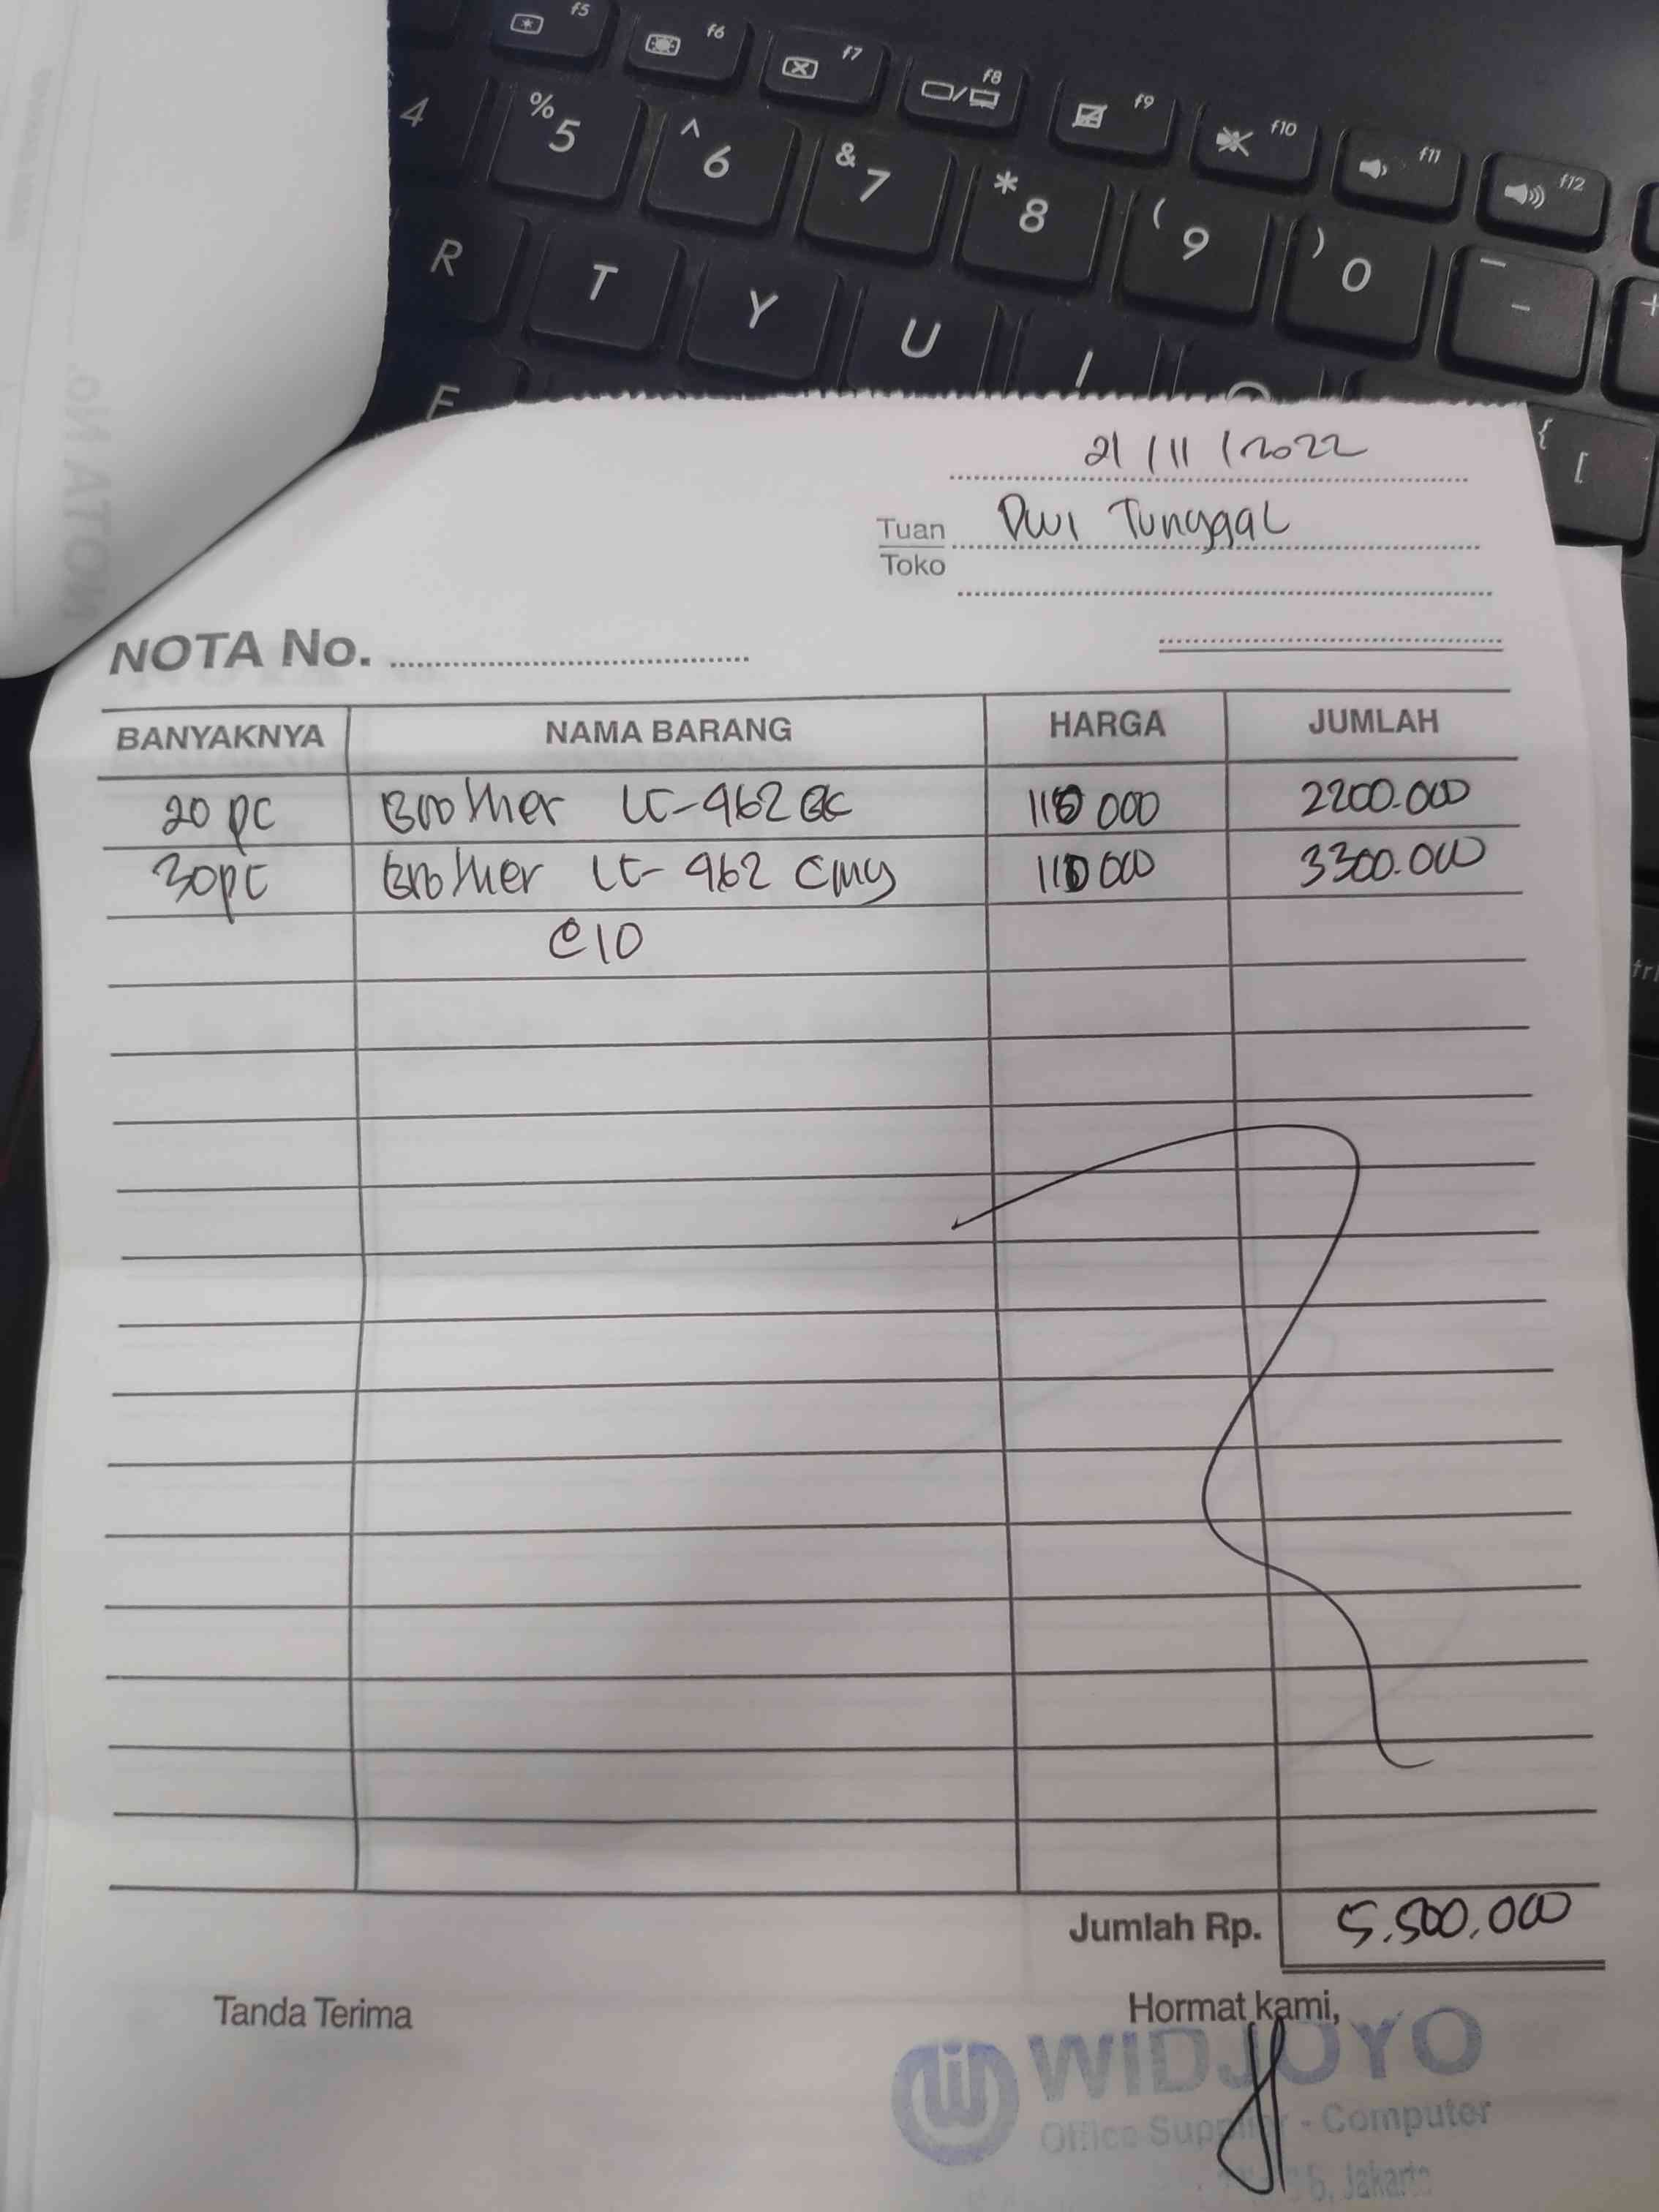 f5 f6 f7 f8 f9 f10 f11 f12
4 % 5 ^ 6 & 7 * 8 ( 9 ) 0 - +
R T Y U I { [
F
21/11/2022
Tuan Dwi Tunggal
Toko
NOTA No.
BANYAKNYA NAMA BARANG HARGA JUMLAH
20 pc Brother LC-962 BK 110 000 2200.000
30pc Brother LC-962 CMY 110 000 3300.000
@10
Jumlah Rp. 5.500.000
Tanda Terima Hormat kami,
WIDJOYO
Office Supplier - Computer
Jakarta